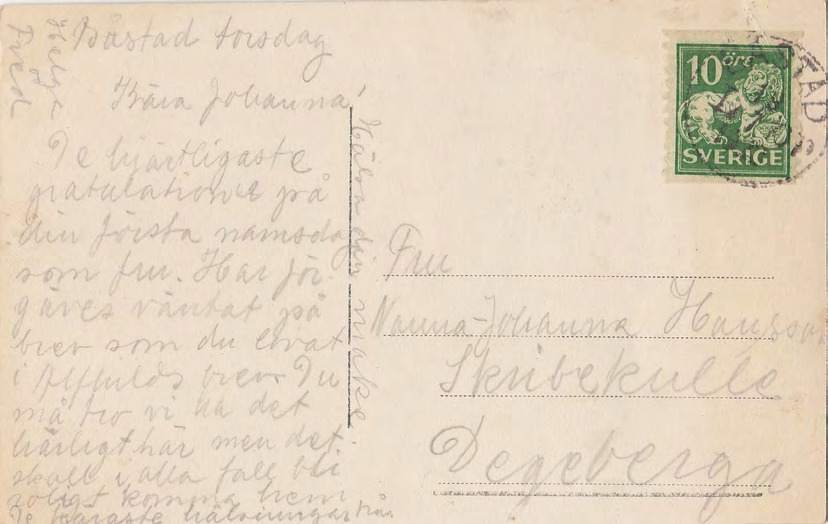 Båstad torsdag
Kära Johanna!
De hjärtligaste
gratulationer på
din första namsdag
som fru. Har för-
gäves väntat på
brev som du lovat
i Alfhilds brev. Du
må tro vi ha det
härligt här men det
skall i alla fall bli
roligt komma hem
De käraste hälsningar från
Helge
o
Fred
Hälsa din make
10 öre
SVERIGE
BÅSTAD
Fru
Nanna-Johanna Hansson
Skribekulle
Degeberga